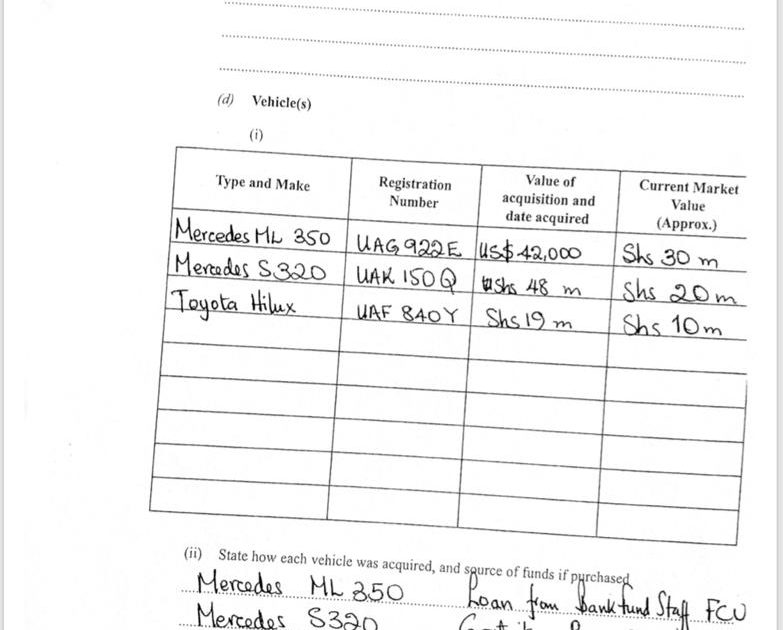 (d) Vehicle(s)
(i)
Type and Make Registration Number Value of acquisition and date acquired Current Market Value (Approx.)
Mercedes ML 350 UAG 922E US$ 42,000 Shs 30 m
Mercedes S320 UAK 150Q Shs 48 m Shs 20 m
Toyota Hilux UAF 840Y Shs 19 m Shs 10 m
(ii) State how each vehicle was acquired, and source of funds if purchased
Mercedes ML 350 Loan from Bank fund Staff FCU
Mercedes S320